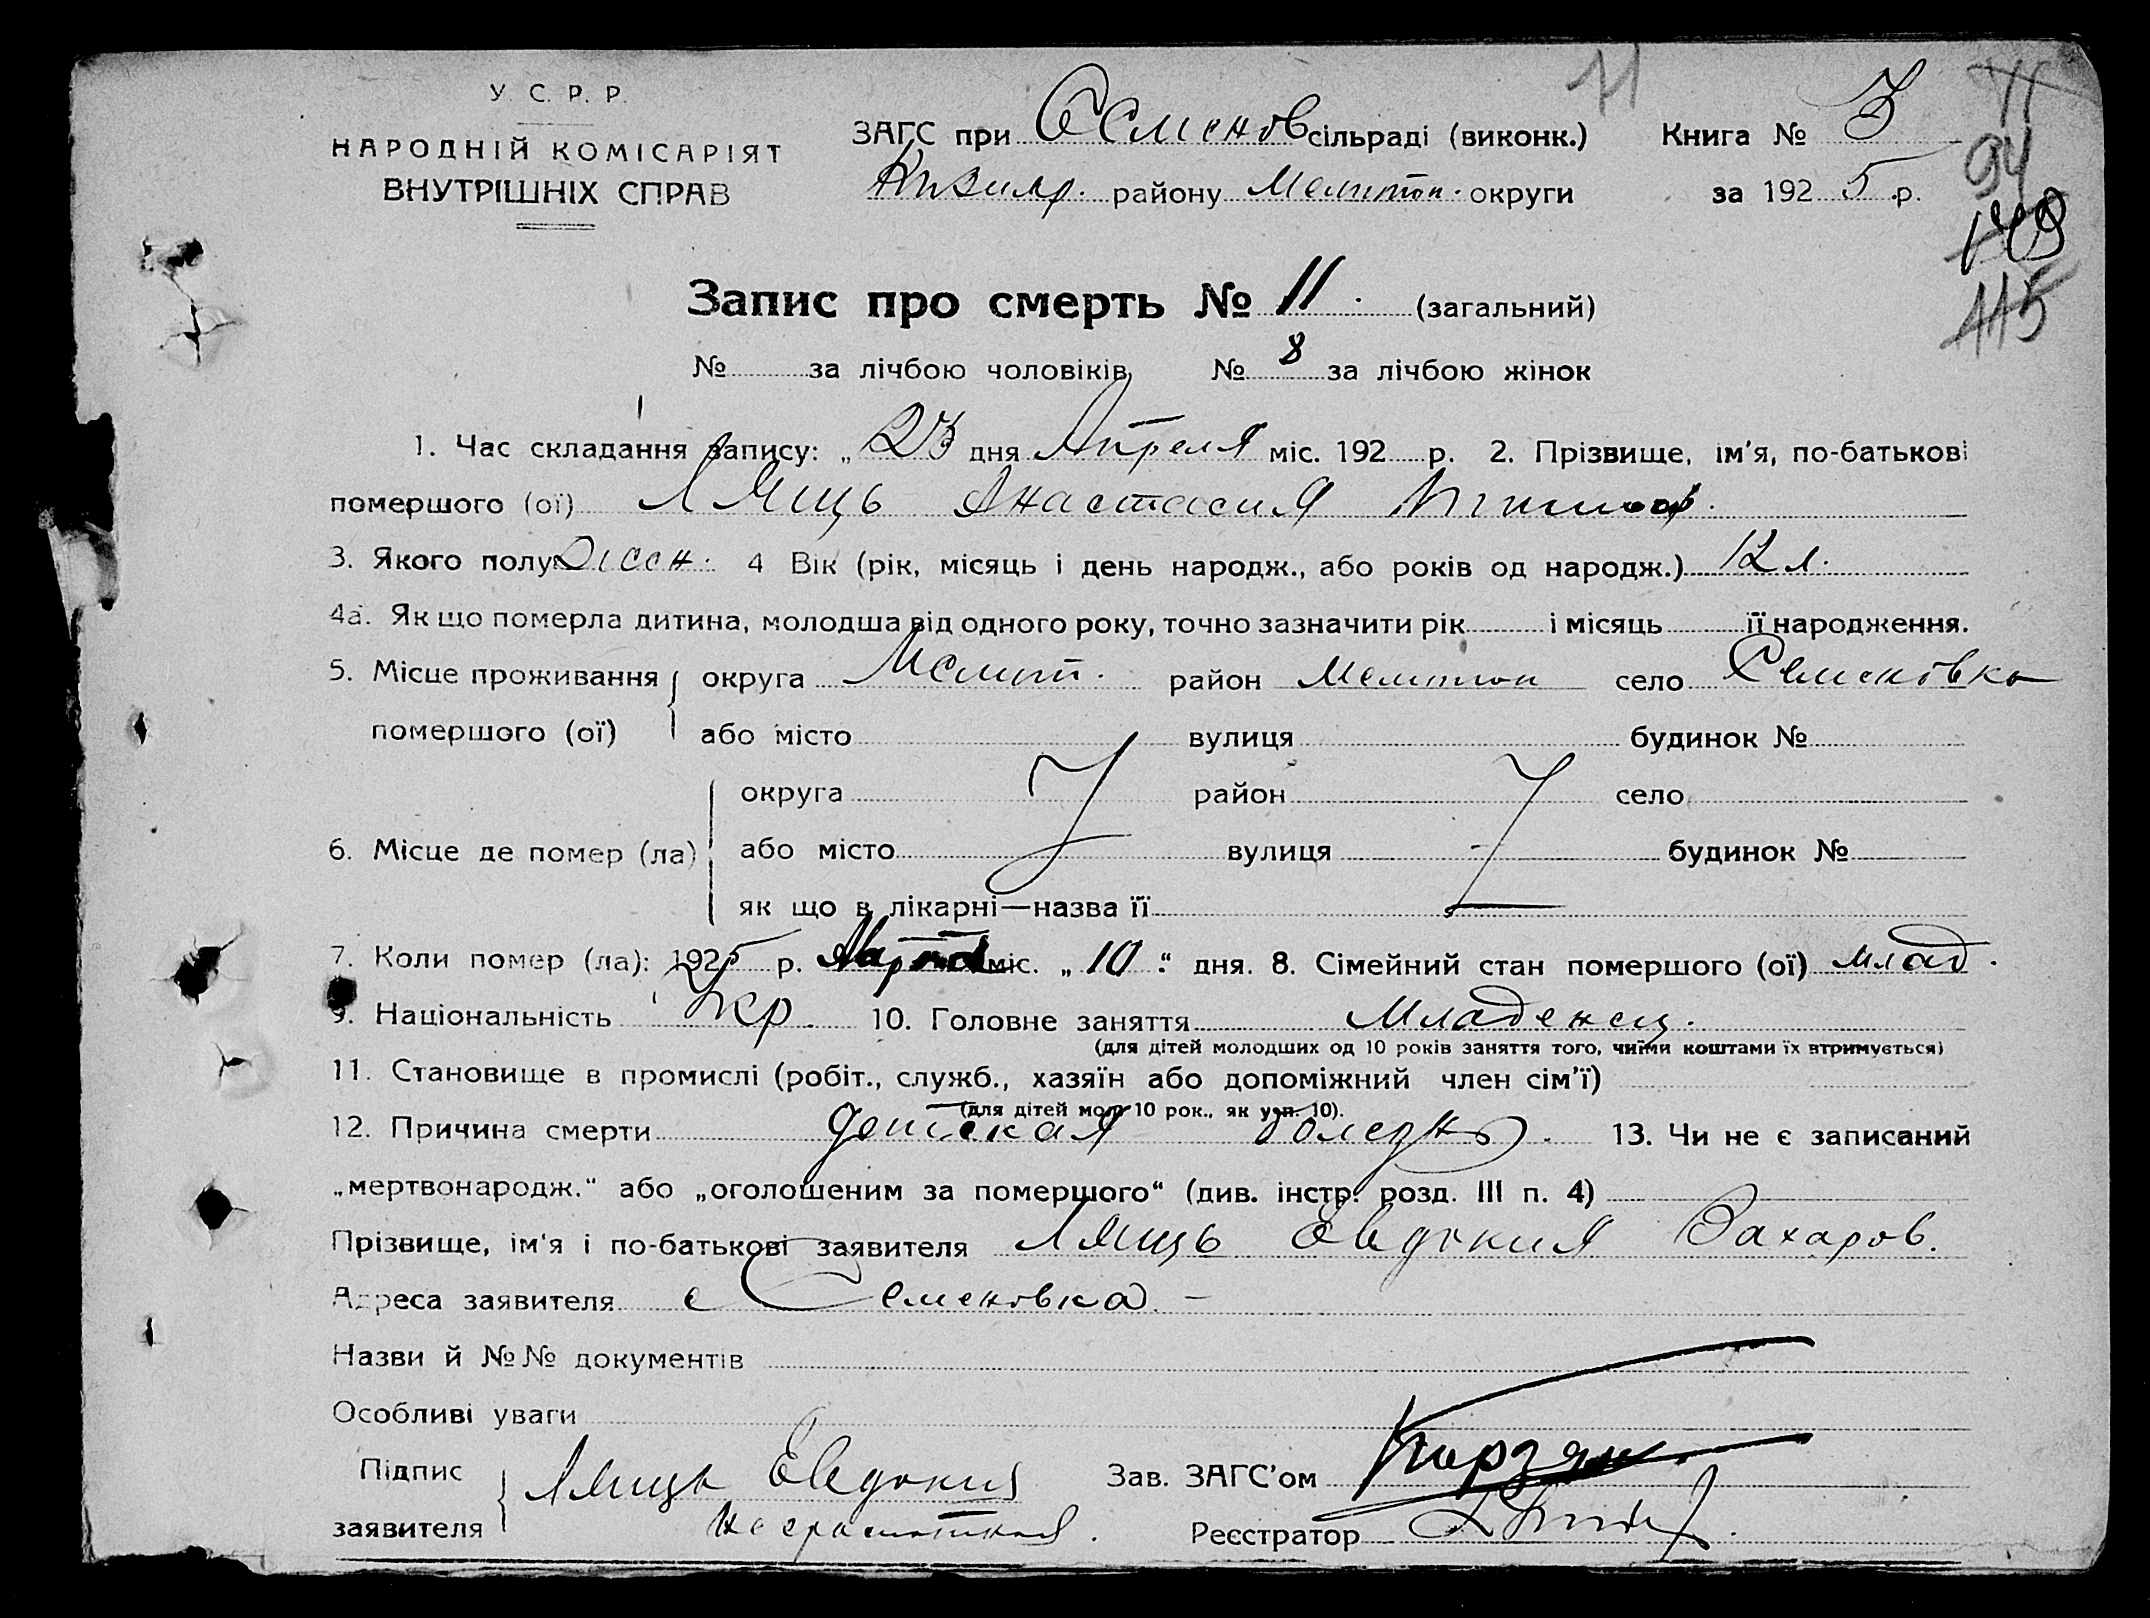 У. С. Р. Р.
НАРОДНІЙ КОМІСАРІЯТ
ВНУТРІШНІХ СПРАВ
11
ЗАГС при Семенов сільраді (виконк.) Книга № 3
району Мелитоп. округи за 1925 р.
94
115
Запис про смерть № 11. (загальний)
№ за лічбою чоловіків, № 8 за лічбою жінок
1. Час складання запису: „ 23 дня Апреля міс. 192 р. 2. Прізвище, ім'я, по-батькові
помершого (ої) Лямцъ Анастасия
3. Якого полу 4 Вік (рік, місяць і день народж., або років од народж.) 12 л.
4а. Як що померла дитина, молодша від одного року, точно зазначити рік і місяць її народження.
5. Місце проживання округа Мелит. район Мелитоп село Семеновка
помершого (ої) або місто вулиця будинок №
округа район село
6. Місце де помер (ла) або місто вулиця будинок №
як що в лікарні—назва її
7. Коли помер (ла): 1925 р. Марта міс. „ 10 “ дня. 8. Сімейний стан помершого (ої) млад.
9. Національність Укр. 10. Головне заняття Младенец.
(для дітей молодших од 10 років заняття того, чиїми коштами їх втримується)
11. Становище в промислі (робіт., служб., хазяїн або допоміжний член сім'ї)
(для дітей мол. 10 рок., як у п. 10).
12. Причина смерти детская болезнь. 13. Чи не є записаний
„мертвонародж.“ або „оголошеним за помершого“ (див. інстр. розд. III п. 4)
Прізвище, ім'я і по-батькові заявителя Лямцъ Евдокия Захаров.
Адреса заявителя с Семеновка. –
Назви й №№ документів
Особливі уваги
Підпис Лямцъ Евдокия Зав. ЗАГС'ом
заявителя неграмотная. Реєстратор